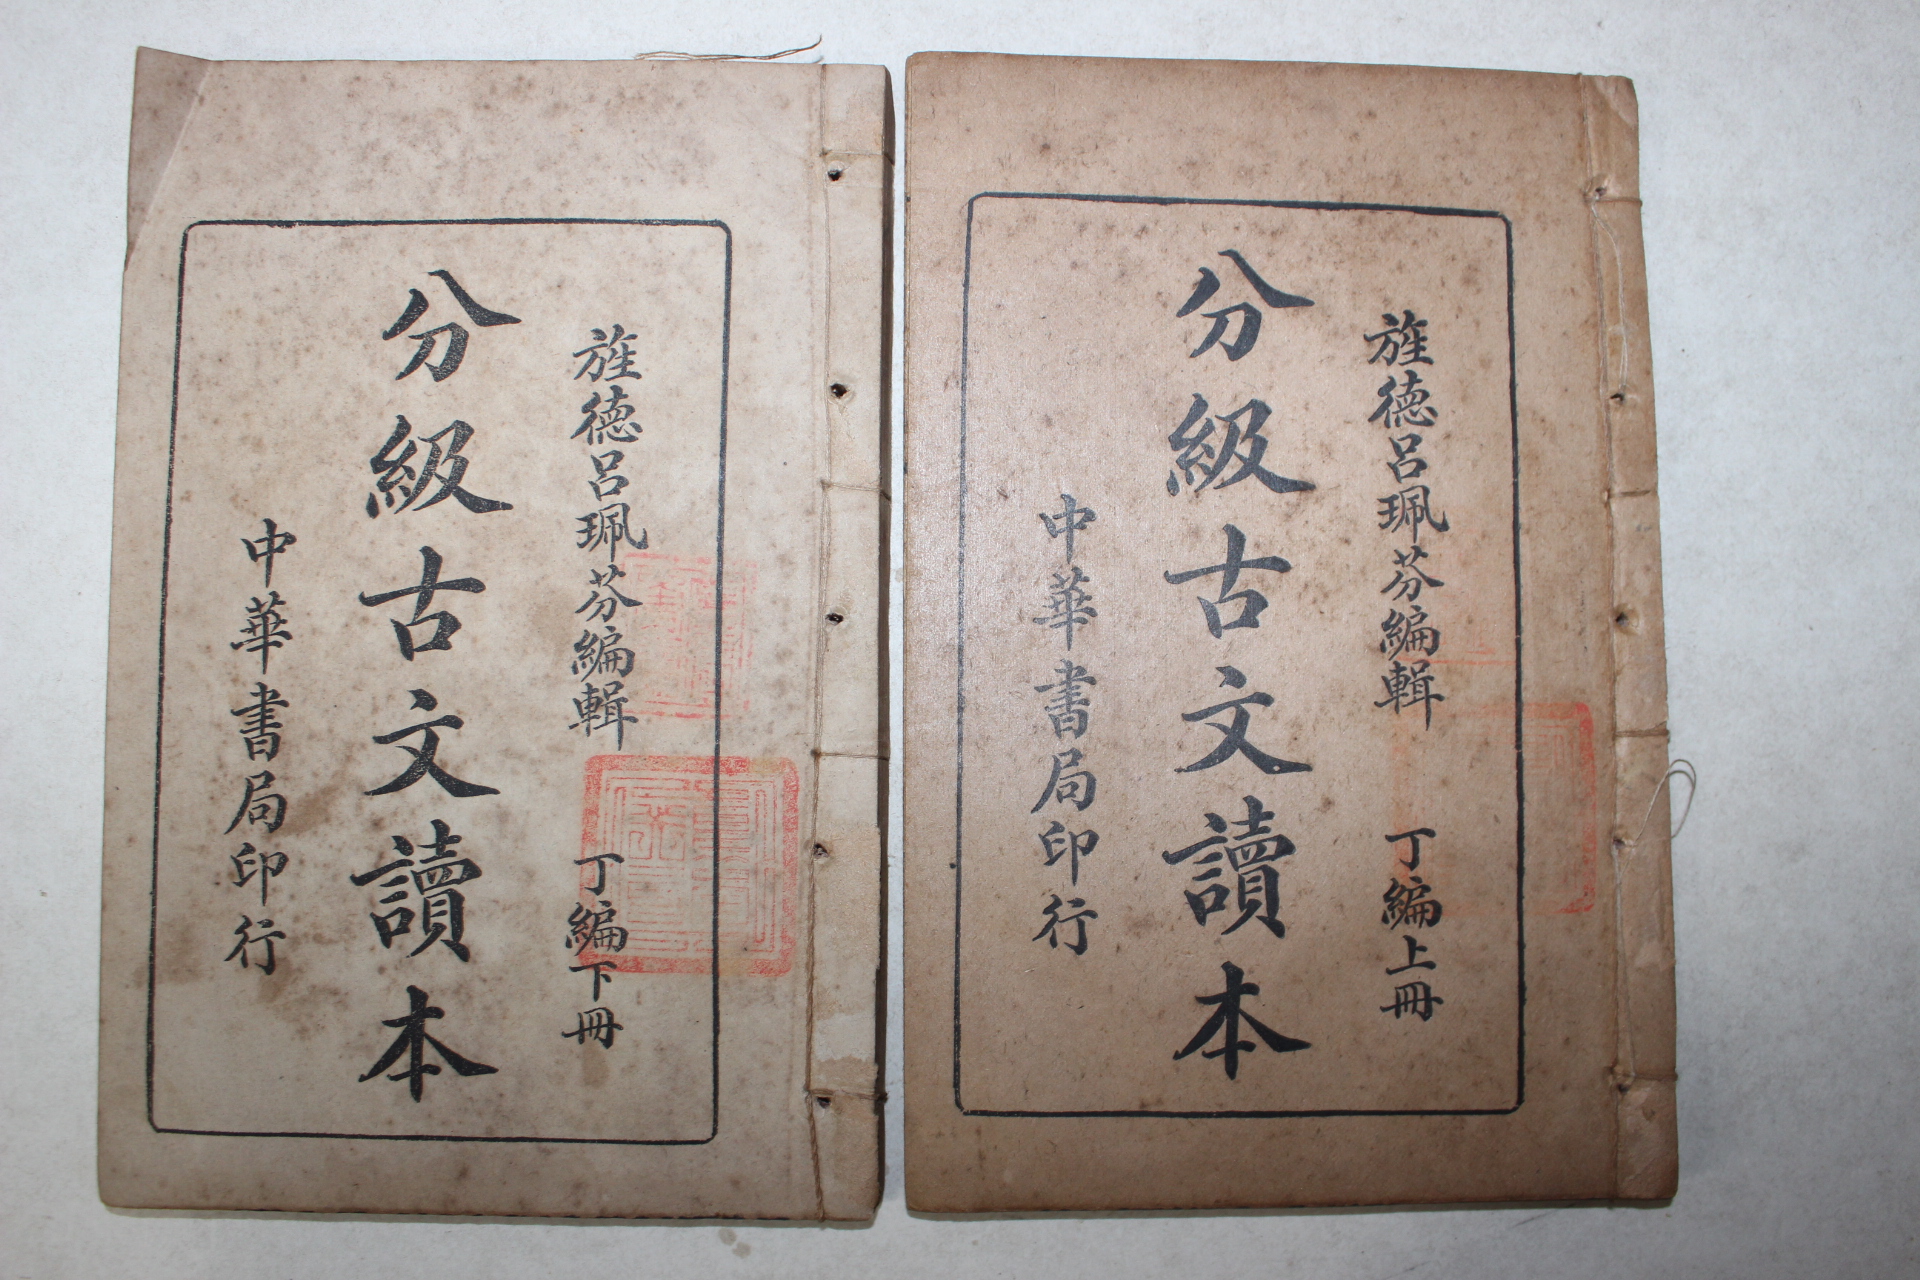 旌德呂珮芬編輯 丁編上冊
分級古文讀本
中華書局印行
旌德呂珮芬編輯 丁編下冊
分級古文讀本
中華書局印行